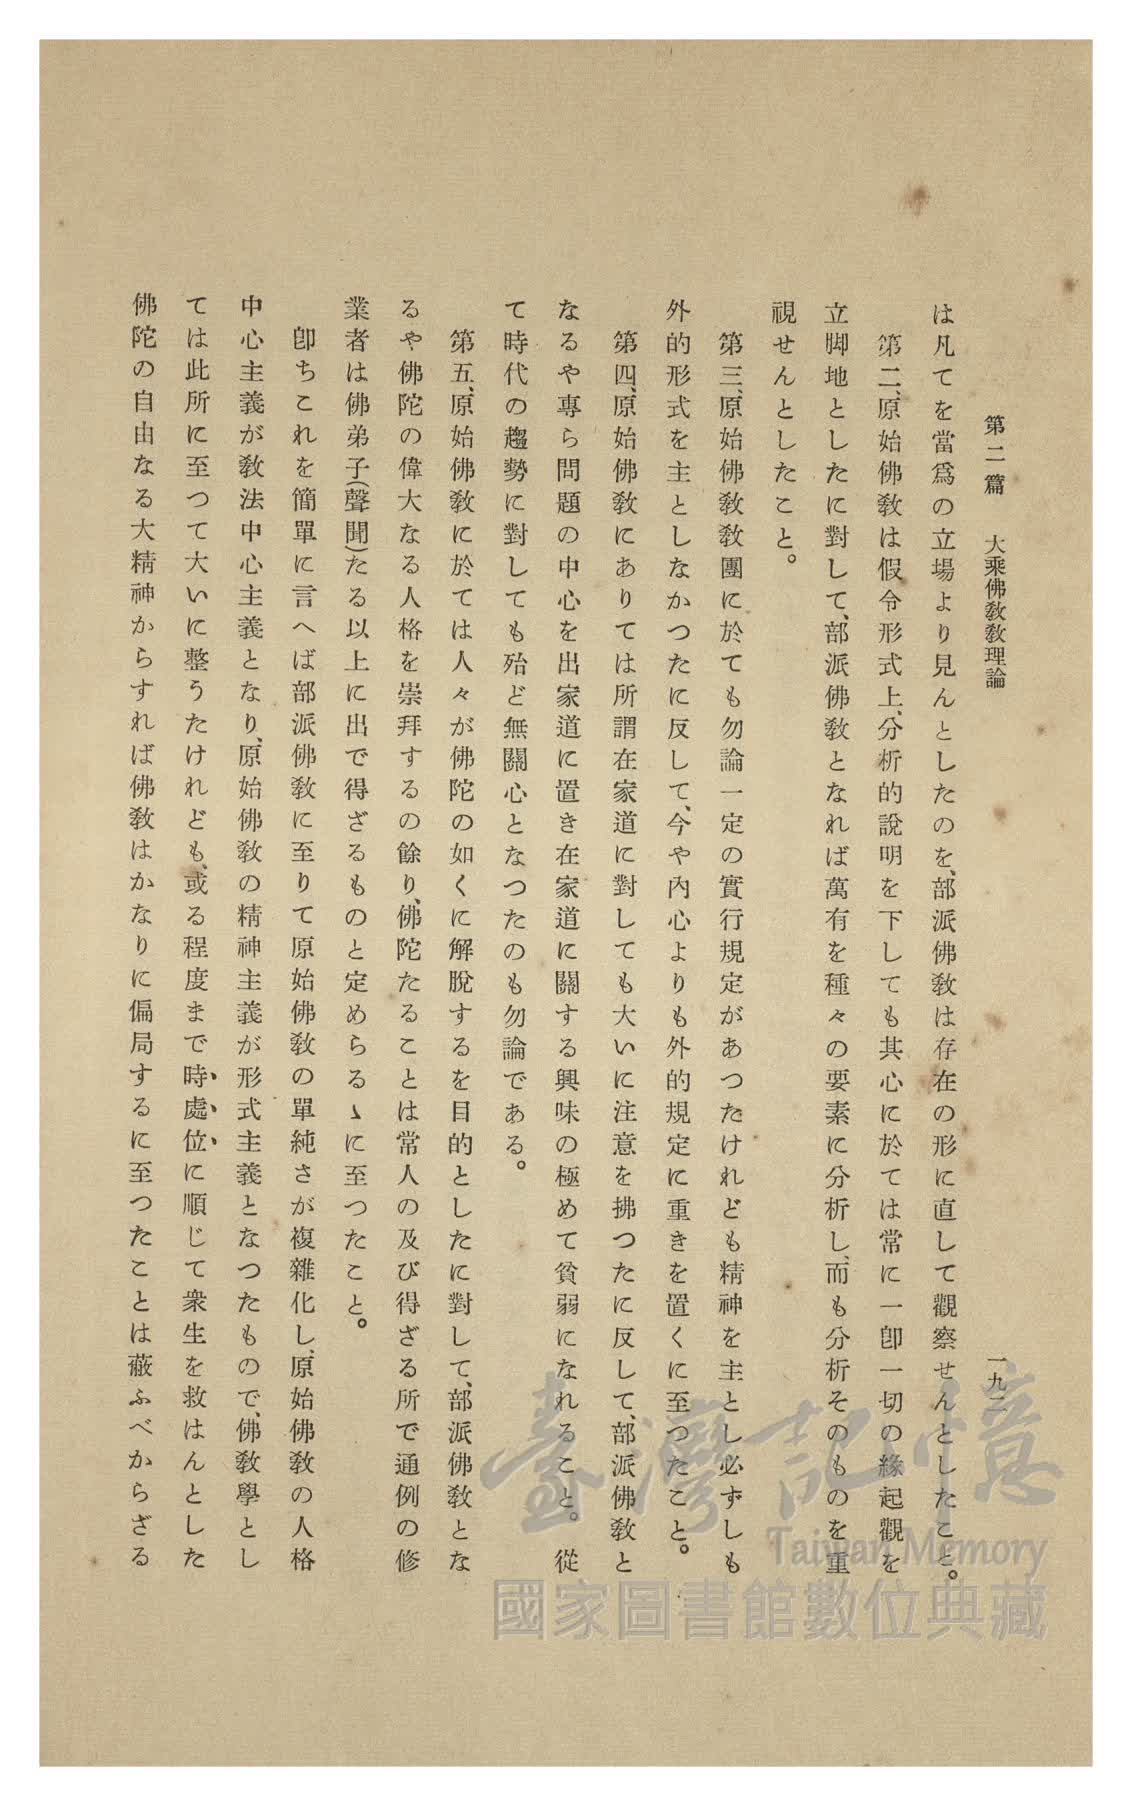 第二篇　大乘佛敎敎理論　一九二
は凡てを當爲の立場より見んとしたのを、部派佛敎は存在の形に直して觀察せんとしたこと。
第二、原始佛敎は假令形式上、分析的說明を下しても其心に於ては常に一卽一切の緣起觀を
立脚地としたに對して、部派佛敎となれば萬有を種々の要素に分析し、而も分析そのものを重
視せんとしたこと。
第三、原始佛敎敎團に於ても勿論一定の實行規定があつたけれども精神を主とし必ずしも
外的形式を主としなかつたに反して、今や內心よりも外的規定に重きを置くに至つたこと。
第四、原始佛敎にありては所謂在家道に對しても大いに注意を拂つたに反して、部派佛敎と
なるや專ら問題の中心を出家道に置き在家道に關する興味の極めて貧弱になれること。從
て時代の趨勢に對しても殆ど無關心となつたのも勿論である。
第五、原始佛敎に於ては人々が佛陀の如くに解脫するを目的としたに對して、部派佛敎とな
るや佛陀の偉大なる人格を崇拜するの餘り、佛陀たることは常人の及び得ざる所で通例の修
業者は佛弟子(聲聞)たる以上に出で得ざるものと定めらるゝに至つたこと。
卽ちこれを簡單に言へば部派佛敎に至りて原始佛敎の單純さが複雜化し、原始佛敎の人格
中心主義が敎法中心主義となり、原始佛敎の精神主義が形式主義となつたもので、佛敎學とし
ては此所に至つて大いに整うたけれども、或る程度まで時、處、位、に順じて衆生を救はんとした
佛陀の自由なる大精神からすれば佛敎はかなりに偏局するに至つたことは蔽ふべからざる
臺灣記憶
Taiwan Memory
國家圖書館數位典藏